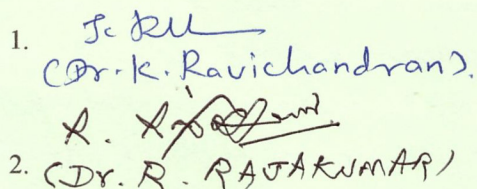 1.
(Dr. K. Ravichandran).
2. (Dr. R. RAJAKUMAR)